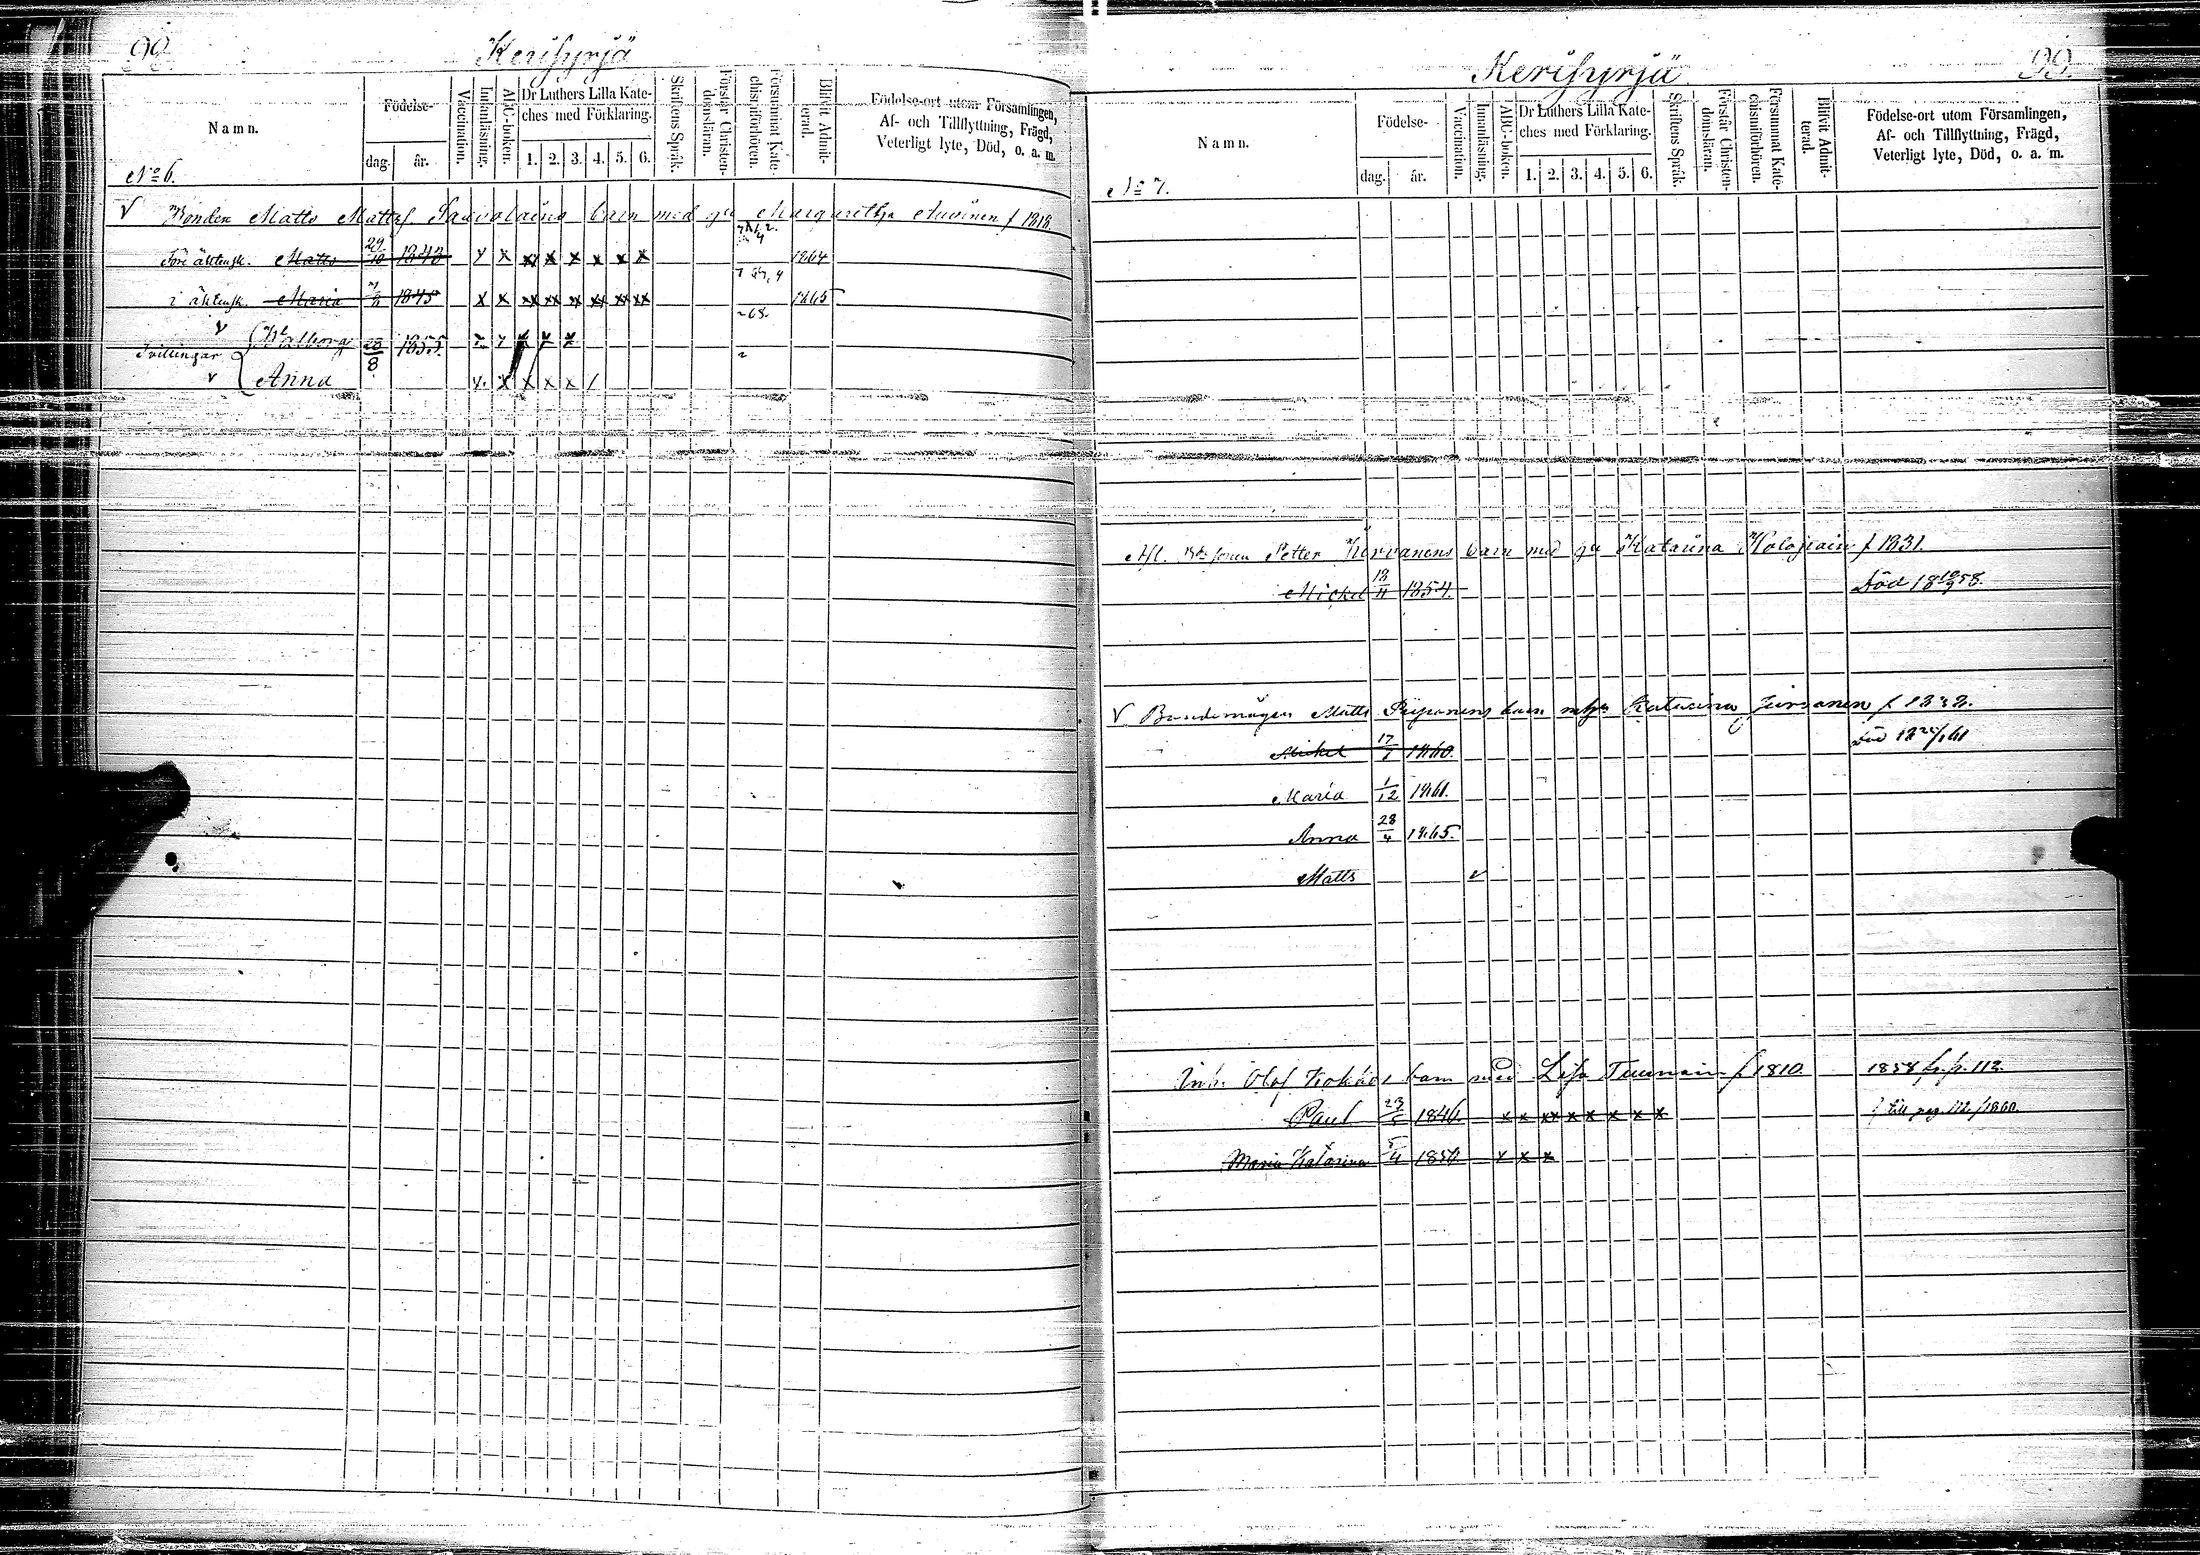 98.
Kerisyrjä
Namn.
Födelse-
dag.
år.
Vaccination.
Innanläsning.
ABC-boken.
Dr Luthers Lilla Kate-
ches med Förklaring.
1. 2. 3. 4. 5. 6.
Skriftens Språk.
Förstår Christen-
domsläran.
Försummat Kate-
chismiförhören.
Blifvit Admit-
terad.
Födelse-ort utom Församlingen,
Af- och Tillflyttning, Frägd,
Veterligt lyte, Död, o. a. m.
No 6.
V Bonden Matts Mattss. Savolains barn med gu Margaretha Auvinen f 1818
Före äktensk. Matts 29/10 1843 x x xx x x x x x 1864
i äktensk. Maria 7/8 1845 x x xx xx xx xx xx xx 1865
Tvillingar
v Walborg 28/8 1855 x x x
v Anna x x x x x /
99.
Kerisyrjä
Namn.
Födelse-
dag.
år.
Vaccination.
Innanläsning.
ABC-boken.
Dr Luthers Lilla Kate-
ches med Förklaring.
1. 2. 3. 4. 5. 6.
Skriftens Språk.
Förstår Christen-
domsläran.
Försummat Kate-
chismiförhören.
Blifvit Admit-
terad.
Födelse-ort utom Församlingen,
Af- och Tillflyttning, Frägd,
Veterligt lyte, Död, o. a. m.
No 7.
Petter Hirvonens barn med gu Katarina Holopain f 1831.
Mickel 18/11 1854. Död 18 10/9 58.
V Bondemågen Matts Piiponens barn Katarina Jurvanen
Mickel 17/1 1860. Död
Maria 1/12 1861.
Anna 28/4 1865.
Matts v
Inh. Olof barn med Lisa Tuunain f 1810. 1858 fr. p. 112.
Paul 1846 x x xx x x x x x till pag. 112 / 1860.
Maria Katarina 5/4 x x x